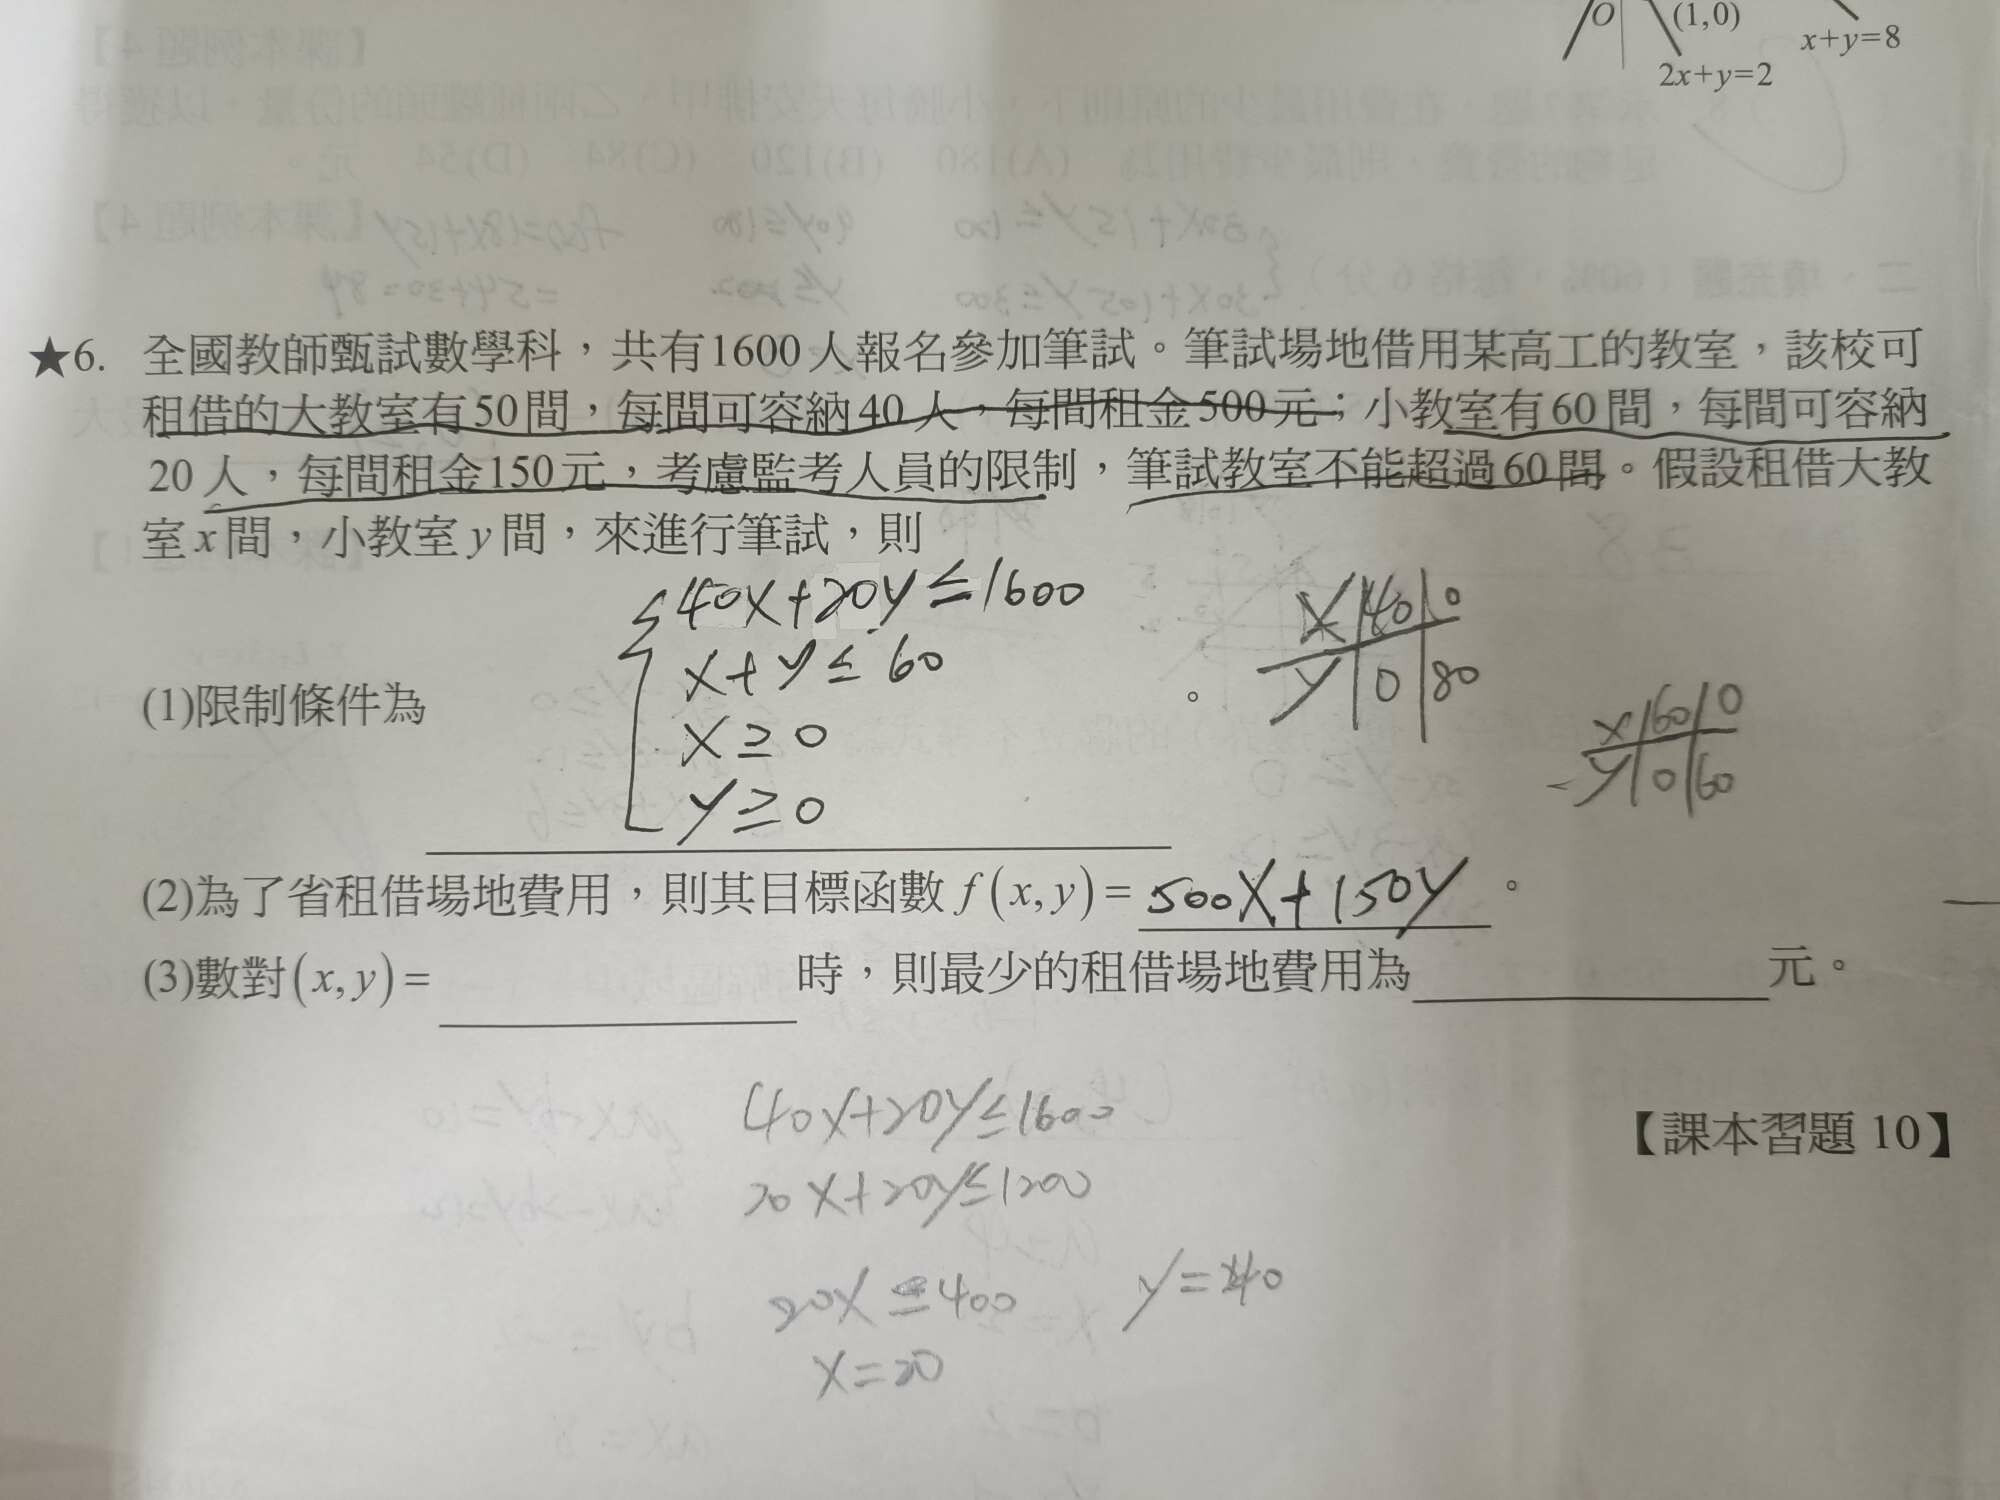 O (1,0) x+y=8
2x+y=2
★6. 全國教師甄試數學科，共有1600人報名參加筆試。筆試場地借用某高工的教室，該校可
租借的大教室有50間，每間可容納40人，每間租金500元；小教室有60間，每間可容納
20人，每間租金150元，考慮監考人員的限制，筆試教室不能超過60間。假設租借大教
室x間，小教室y間，來進行筆試，則
40x+20y≤1600
x+y≤60
x≥0
y≥0
(1)限制條件為 。
x 40 0
y 0 80
x 60 0
y 0 60
(2)為了省租借場地費用，則其目標函數 f(x,y)= 500x+150y 。
(3)數對(x,y)= 時，則最少的租借場地費用為 元。
40x+20y≤1600
20x+20y≤1200
20x≤400 y=40
x=20
【課本習題 10】